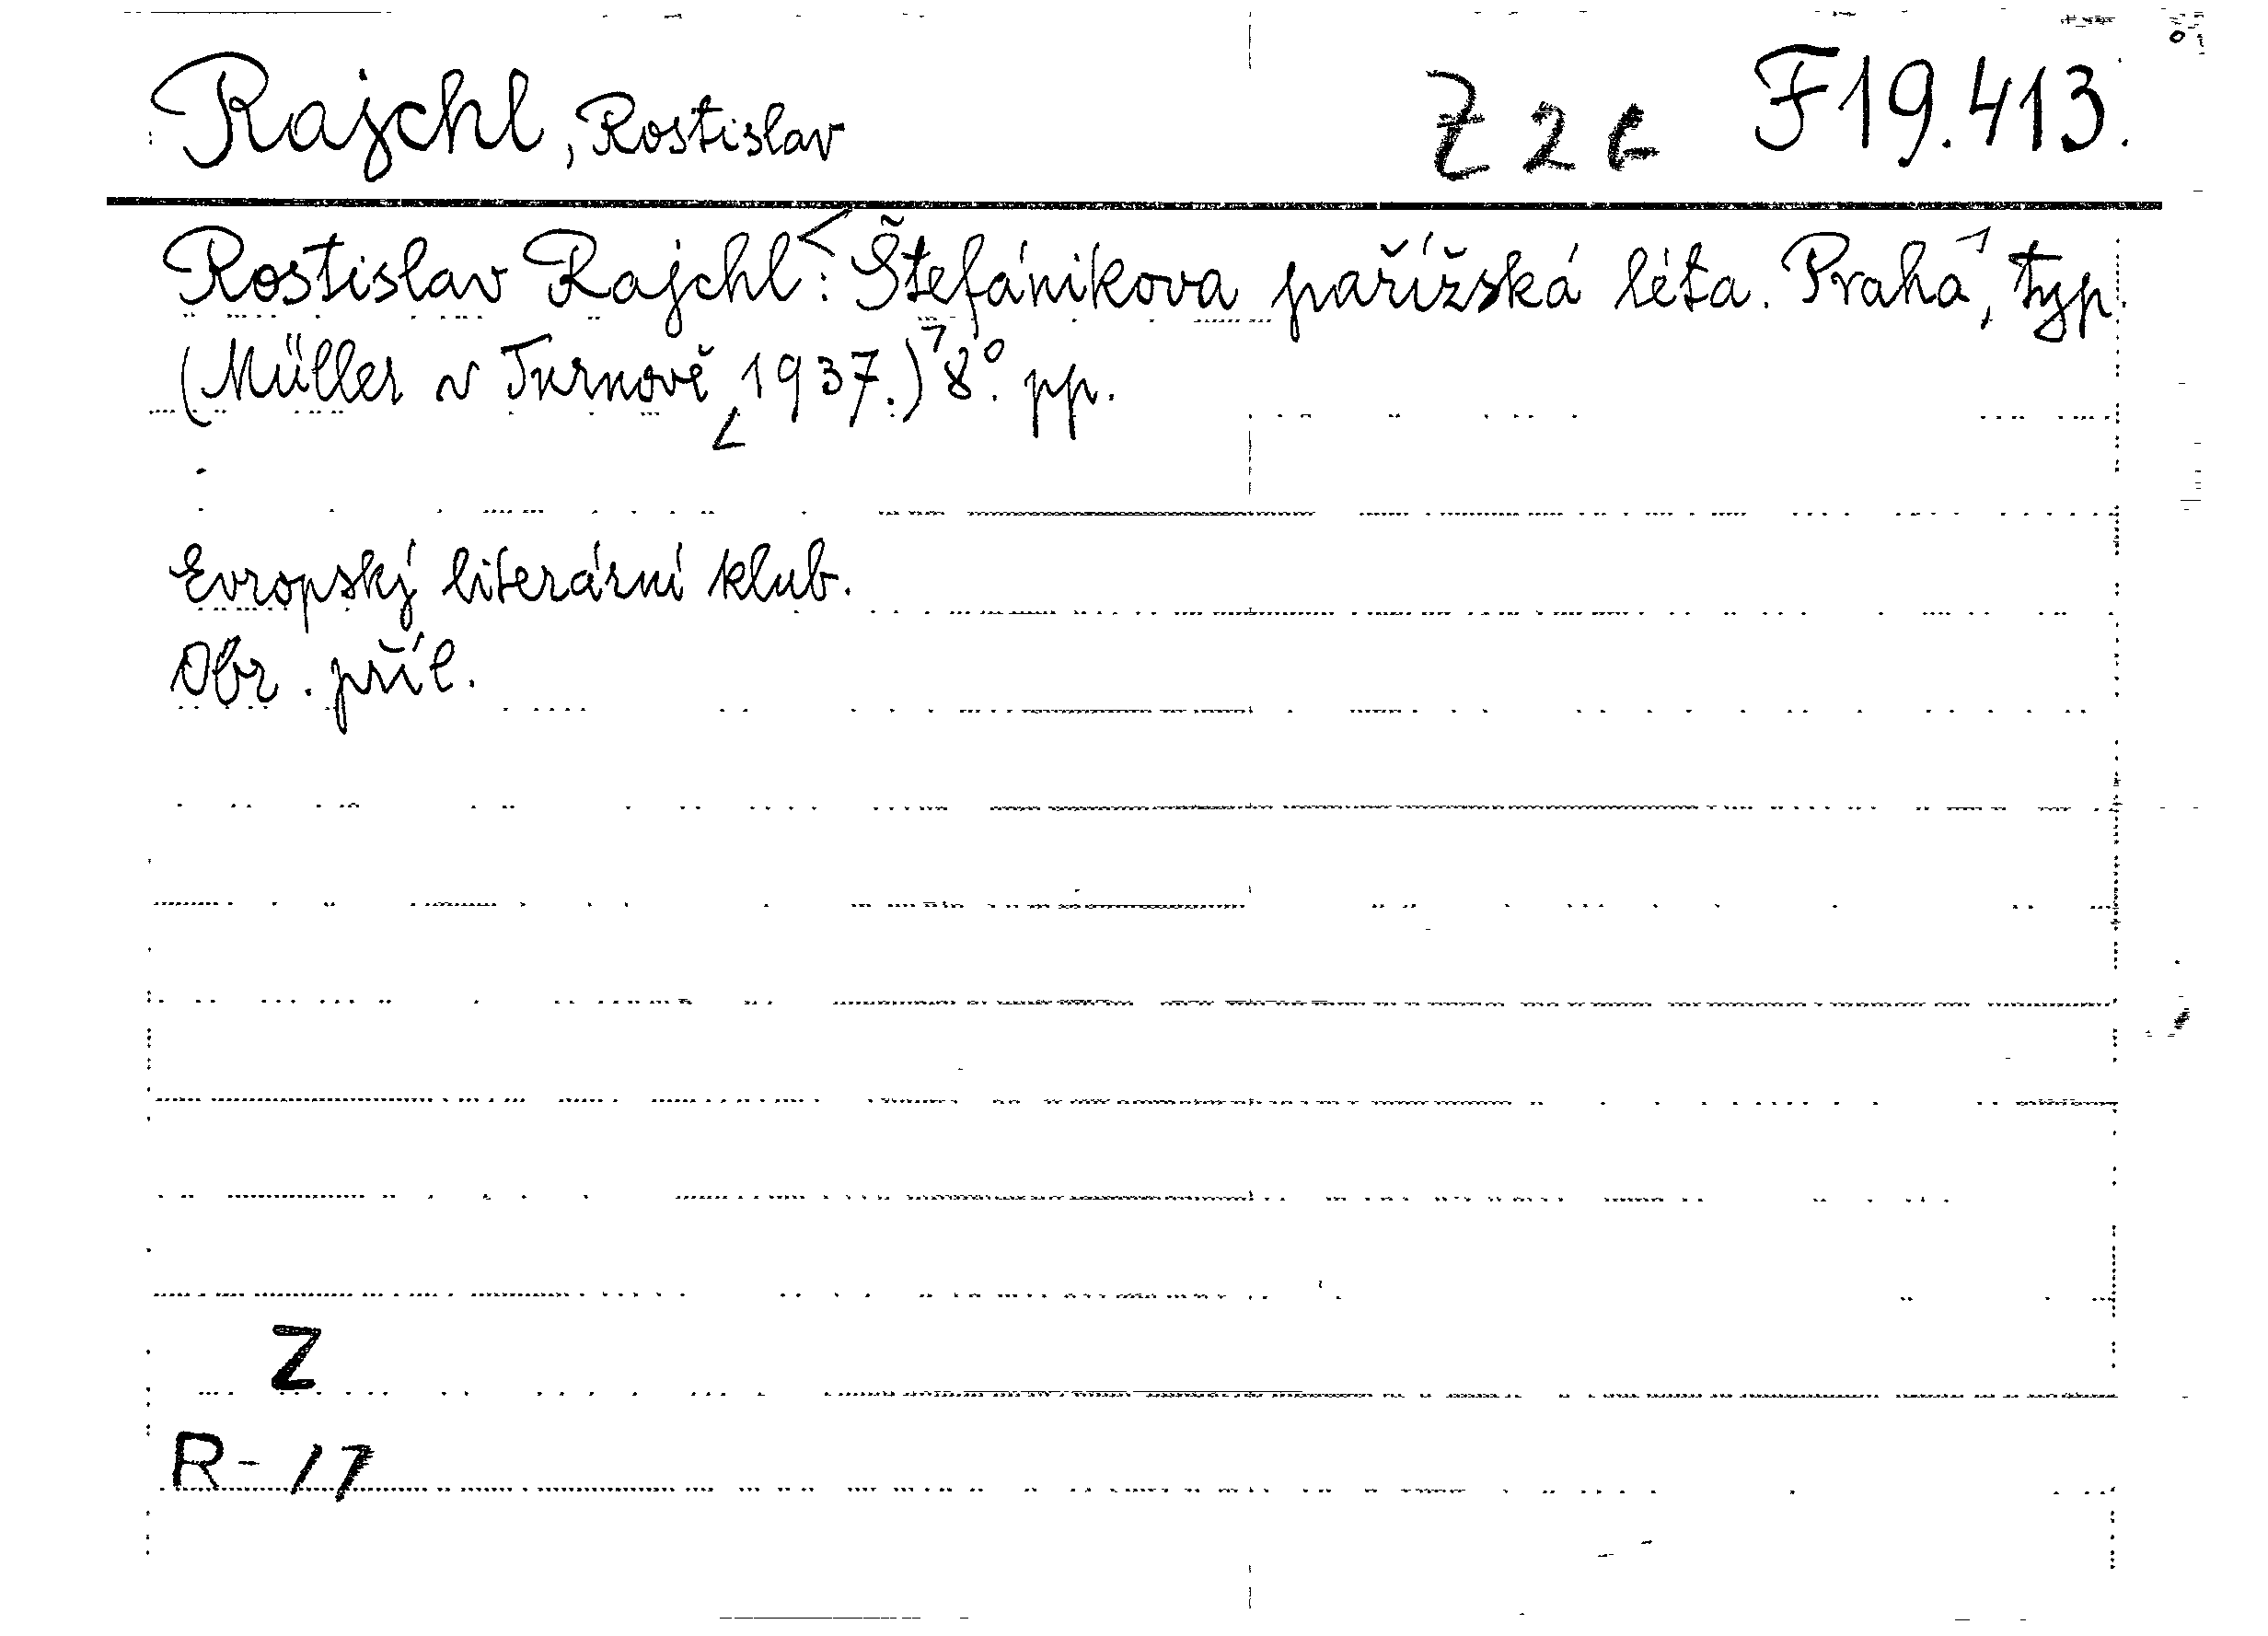 Rajchl, Rostislav Z 2 c F 19.413.
Rostislav Rajchl: Štefánikova pařížská léta. Praha, typ.
(Müller v Turnově 1937.) 8°. pp.
Evropský literární klub.
Obr. příl.
Z
R-17